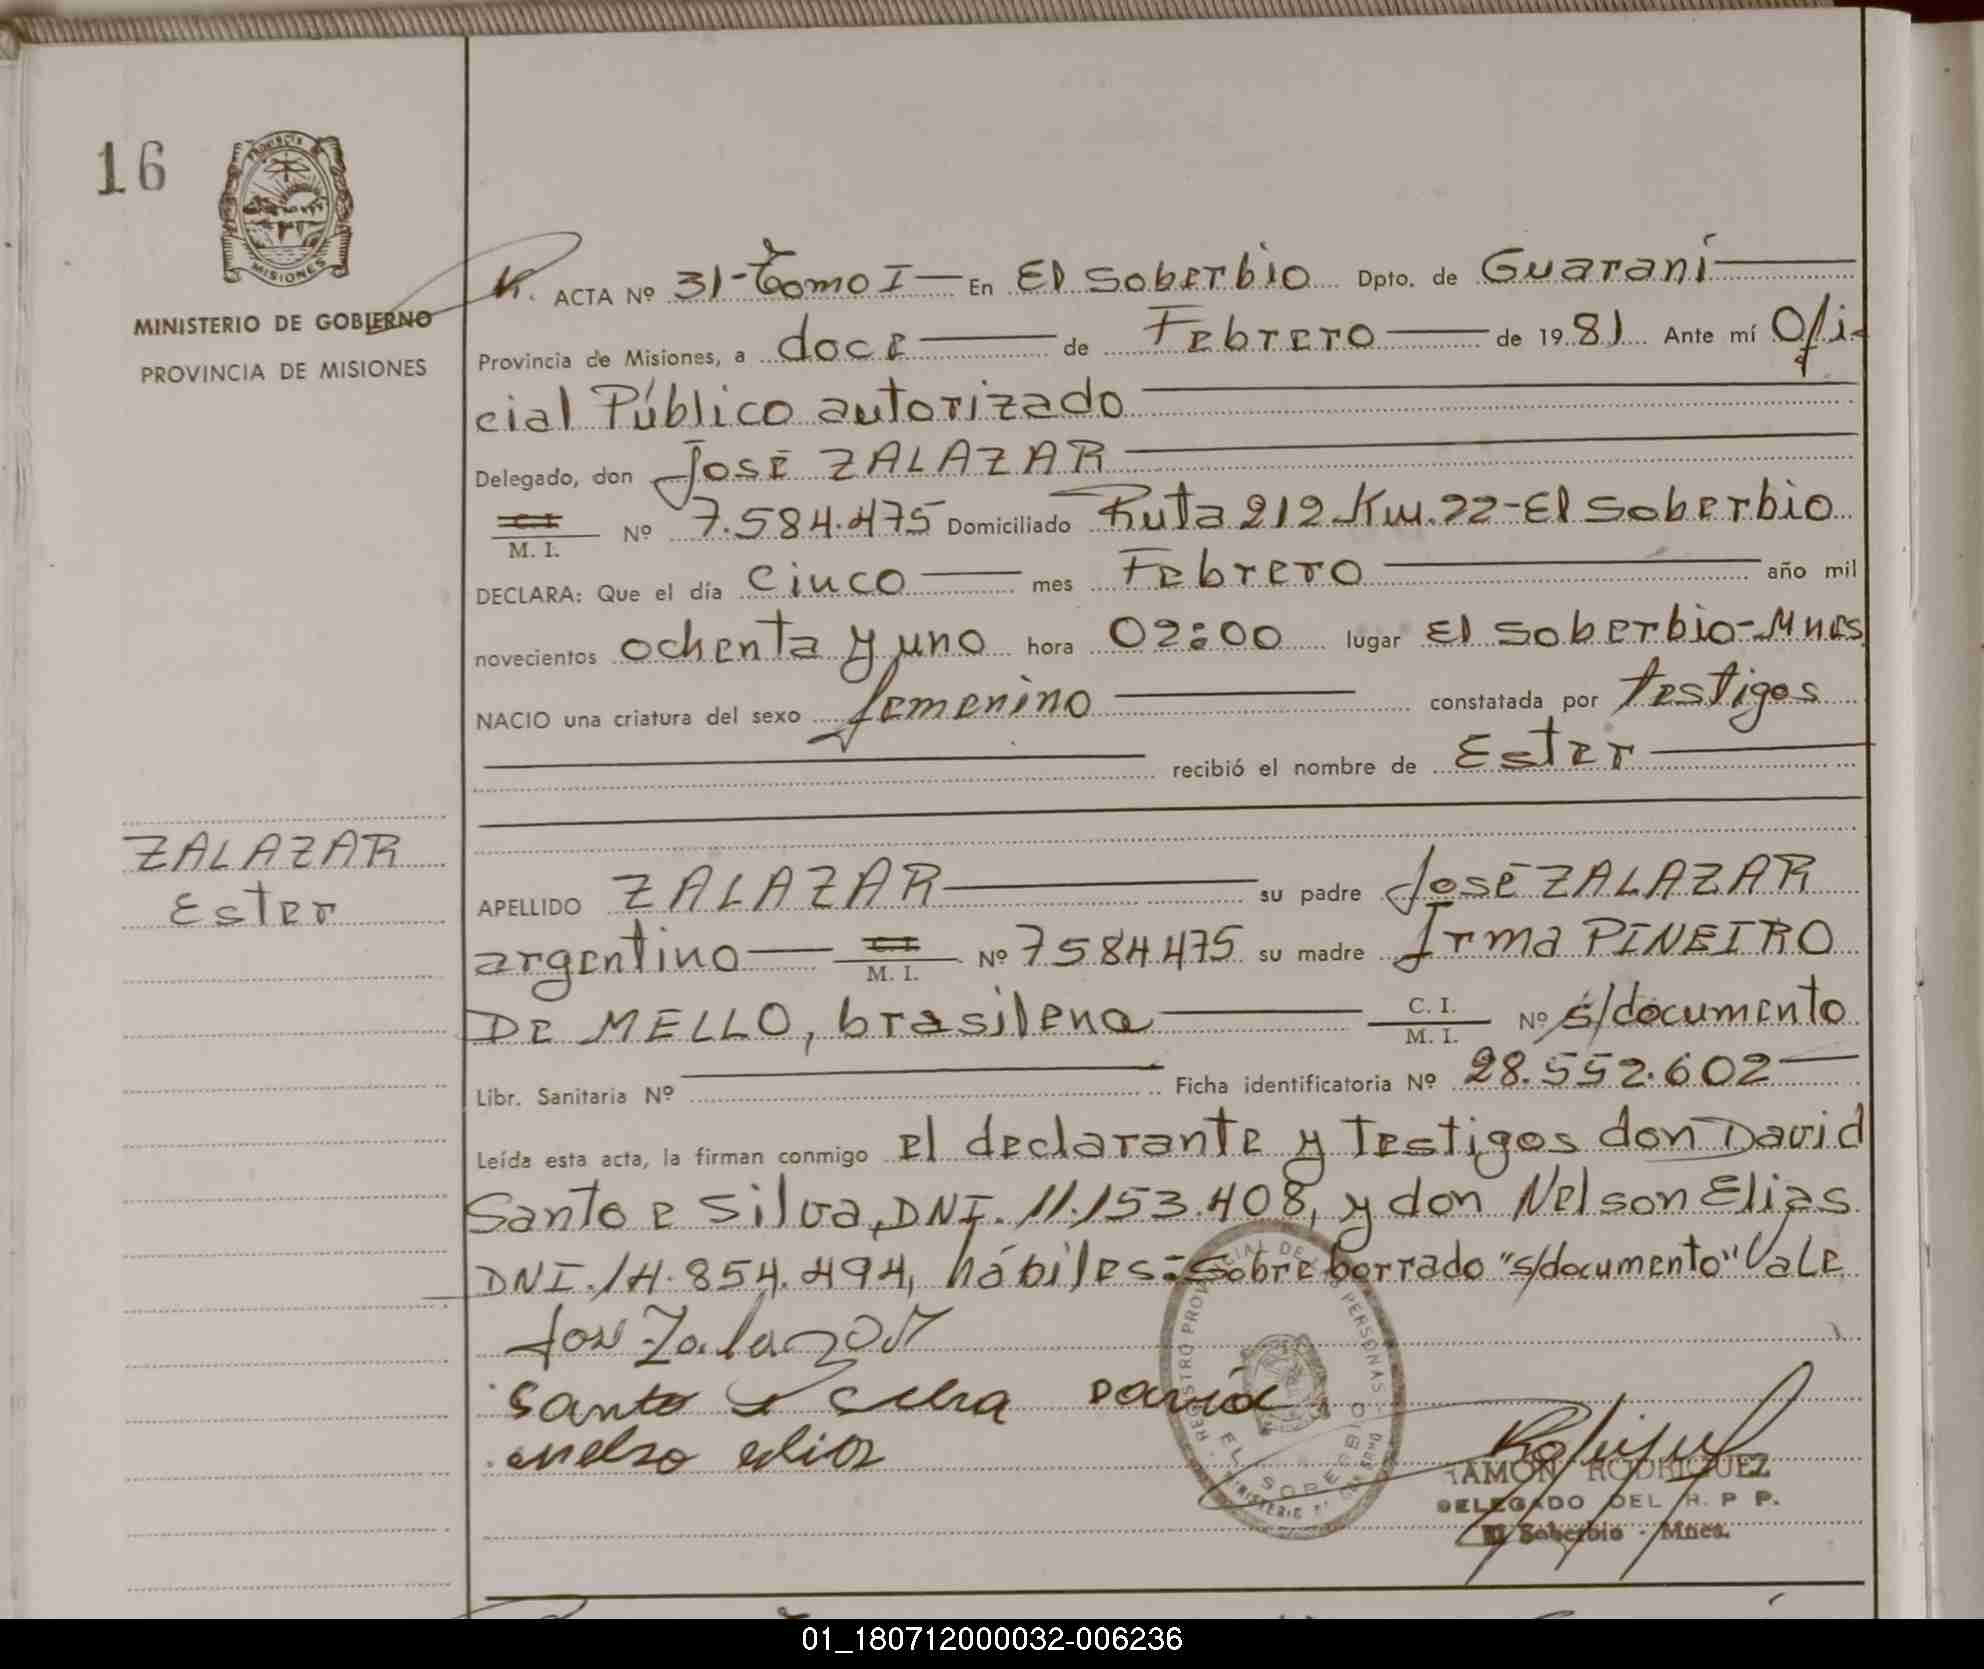 16
PROVINCIA
MISIONES
MINISTERIO DE GOBIERNO
PROVINCIA DE MISIONES
ACTA Nº 31-Tomo I — En El Soberbio Dpto. de Guaraní
Provincia de Misiones, a doce de Febrero de 1981 Ante mí Ofi-
cial Público autorizado
Delegado, don José ZALAZAR
C.I. M. I. Nº 7.584.475 Domiciliado Ruta 212 Km. 22-El Soberbio
DECLARA: Que el día cinco mes Febrero año mil
novecientos ochenta y uno hora 02:00 lugar El Soberbio-Mnes
NACIO una criatura del sexo femenino constatada por testigos
recibió el nombre de Ester
ZALAZAR
Ester
APELLIDO ZALAZAR su padre José ZALAZAR
argentino — C.I. M. I. Nº 7584475 su madre Irma PINEIRO
DE MELLO, brasilena C. I. M. I. Nº s/documento
Libr. Sanitaria Nº Ficha identificatoria Nº 28.552.602
Leída esta acta, la firman conmigo el declarante y testigos don David
Santo e Silva, DNI. 11.153.408, y don Nelson Elias
DNI. 14.854.494, hábiles=Sobre borrado "s/documento" Vale
Zalazar
Santo e Silva David
nelso elias
REGISTRO PROVINCIAL DE LAS PERSONAS
EL SOBERBIO
RAMON RODRIGUEZ
DELEGADO DEL R. P P.
El Soberbio - Mnes.
01_180712000032-006236